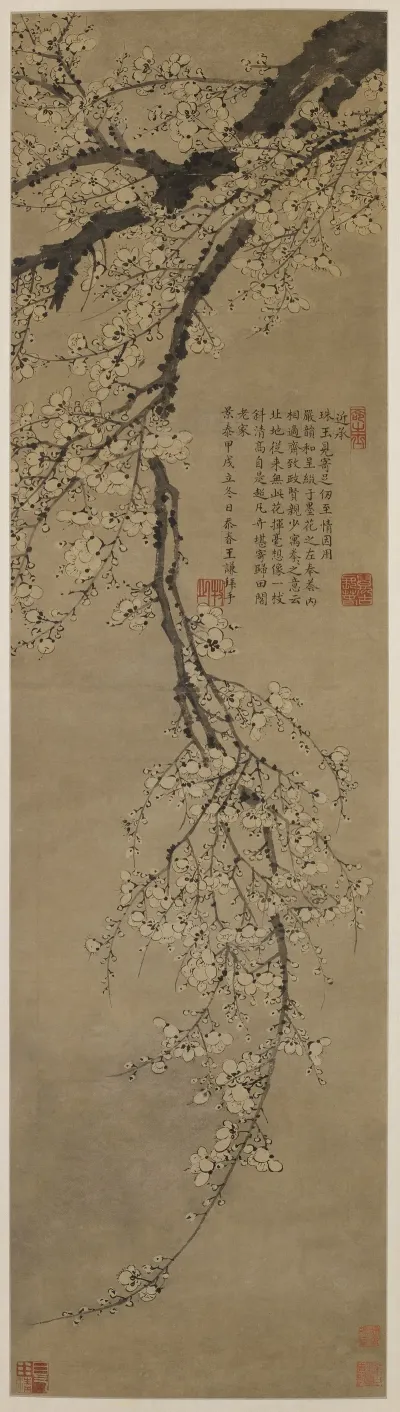 近承
珠玉見寄足仞至情因用
嚴韻和呈緞于墨花之左奉慕內
相適齋致政賢親少寓眷之意云
北地從來無此花揮毫想像一枝
斜清高自是超凡卉堪寄歸田閣
老家
景泰甲戌立冬日恭眷王謙拜手